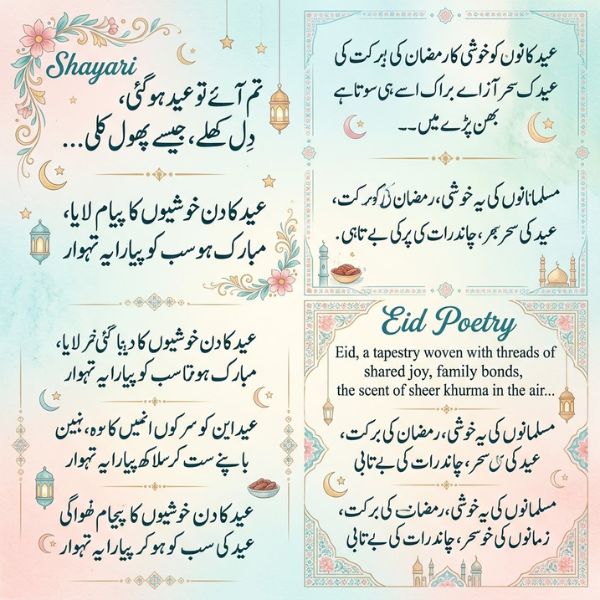 Shayari
تم آئے تو عید ہو گئی،
دِل کھلے، جیسے پھول کلی...
عید کا دن خوشیوں کا پیام لایا،
مبارک ہو سب کو پیارا یہ تہوار
عید کا دن خوشیوں کا دینا گئی خر لایا،
مبارک ہوتا سب کو پیارا یہ تہوار
عید این کو سر کوں انھیں کا وہ، نہین
باپنے ست کر سلاکھ پیارا یہ تہوار
عید کا دن خوشیوں کا پیجام
عید کی سب کو ہو کر پیارا یہ تہوار
عید کانوں کو خوشی کا رمضان کی برکت کی
عید ک سحر آزاے براک اسے ہی سوتا ہے
بھن پڑے میں۔۔
مسلمانانوں کی یہ خوشی، رمضان برکت،
عید کی سحر بھر، چاندرات کی پر کی بے تابی۔
Eid Poetry
Eid, a tapestry woven with threads of
shared joy, family bonds,
the scent of sheer khurma in the air...
مسلمانوں کی یہ خوشی، رمضان کی برکت،
عید کی سحر، چاندرات کی بے تابی
مسلمانوں کی یہ خوشی، رمضان کی برکت،
زمانوں کی خو سحر، چاندرات کی بے تابی